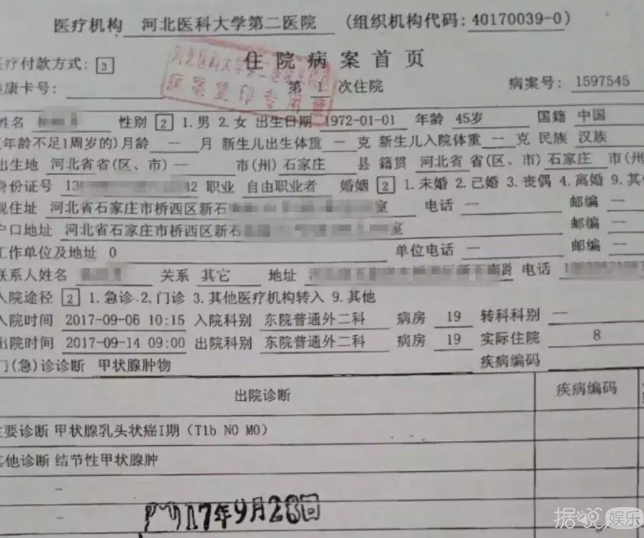 医疗机构 河北医科大学第二医院 (组织机构代码: 40170039-0)
医疗付款方式: 3 住院病案首页
健康卡号: 第 1 次住院 病案号: 1597545
姓名 性别 2 1.男 2.女 出生日期 1972-01-01 年龄 45岁 国籍 中国
(年龄不足1周岁的)月龄 一 月 新生儿出生体重 一 克 新生儿入院体重 一 克 民族 汉族
出生地 河北省省(区、市) 一 市(州) 石家庄 县 籍贯 河北省省(区、市) 石家庄 市(州)
身份证号 42 职业 自由职业者 婚姻 2 1.未婚 2.已婚 3.丧偶 4.离婚 9.其
现住址 河北省石家庄市桥西区新石 室 电话 一 邮编 一
户口地址 河北省石家庄市桥西区新石 室 邮编 一
工作单位及地址 0 单位电话 一 邮编 一
联系人姓名 关系 其它 地址 电话
入院途径 2 1.急诊 2.门诊 3.其他医疗机构转入 9.其他
入院时间 2017-09-06 10:15 入院科别 东院普通外二科 病房 19 转科科别 一
出院时间 2017-09-14 09:00 出院科别 东院普通外二科 病房 19 实际住院 8
门(急)诊诊断 甲状腺肿物 疾病编码
出院诊断 疾病编码
主要诊断 甲状腺乳头状癌I期 (T1b N0 M0)
其他诊断 结节性甲状腺肿
17年9月28日
据说娱乐